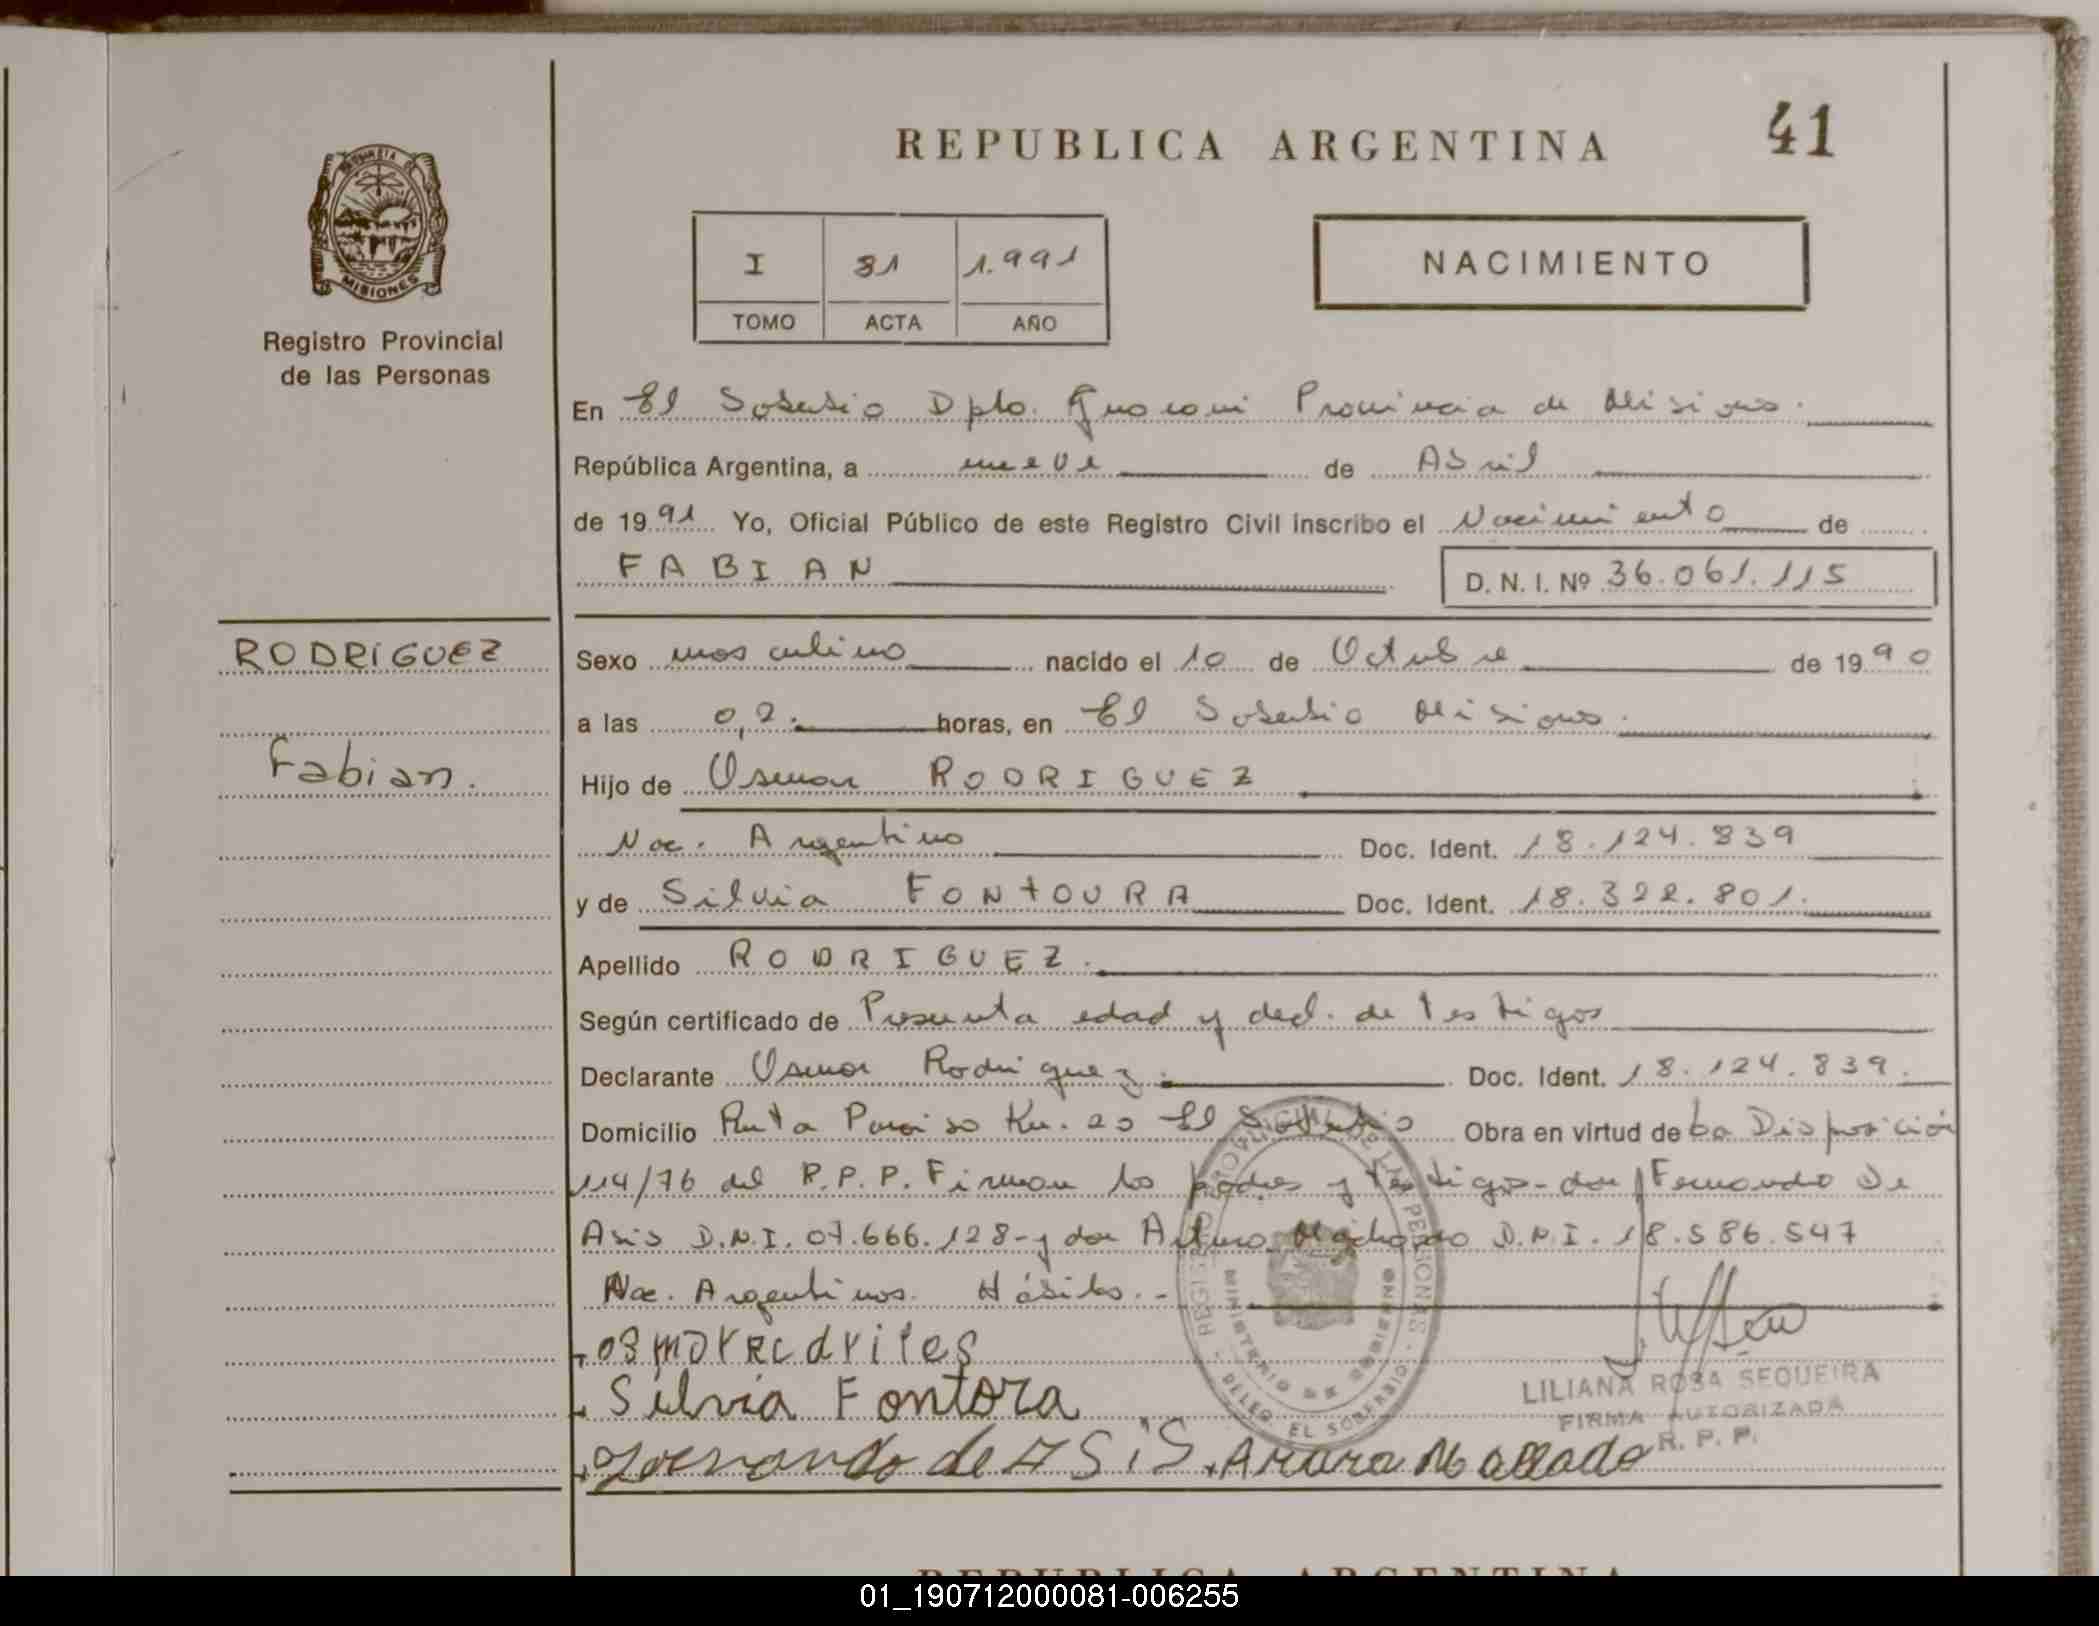 REPUBLICA ARGENTINA
41
PROVINCIA DE
MISIONES
Registro Provincial
de las Personas
I 81 1.991
TOMO ACTA AÑO
NACIMIENTO
En El Soberbio Dpto. Guarani Provincia de Misiones.
República Argentina, a nueve de Abril
de 1991 Yo, Oficial Público de este Registro Civil inscribo el Nacimiento de
FABIAN D. N. I. Nº 36.061.115
RODRIGUEZ
Fabian.
Sexo masculino nacido el 10 de Octubre de 1990
a las 0,2. horas, en El Soberbio Misiones.
Hijo de Osmar RODRIGUEZ
Nac. Argentino Doc. Ident. 18.124.839
y de Silvia FONTOURA Doc. Ident. 18.322.801.
Apellido RODRIGUEZ.
Según certificado de Presunta edad y decl. de testigos
Declarante Osmar Rodriguez. Doc. Ident. 18.124.839.
Domicilio Ruta Paraiso Km. 20 El Soberbio Obra en virtud de la Disposición
114/76 del R.P.P. Firman los padres y testigos- don Fernando De
Asis D.N.I. 07.666.128- y don Arturo Machado D.N.I. 18.586.547
Nac. Argentinos. Hábiles.-
Silvia Fontora
de ASiS
REGISTRO PROVINCIAL DE LAS PERSONAS
MINISTERIO DE GOBIERNO
DELEG. EL SOBERBIO
LILIANA ROSA SEQUEIRA
FIRMA AUTORIZADA
R. P. P.
REPUBLICA ARGENTINA
01_190712000081-006255